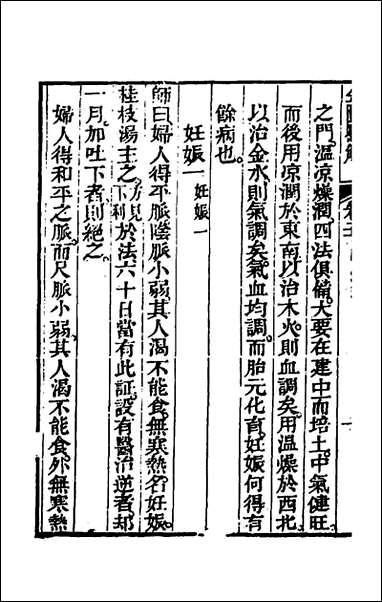 之門溫凉燥潤四法俱備大要在建中而培土中氣健旺
而後用凉潤於東南以治木火則血調矣用溫燥於西北
以治金水則氣調矣氣血均調而胎元化育妊娠何得有
餘病也
妊娠一 妊娠一
師曰婦人得平脈陰脈小弱其人渴不能食無寒熱名妊娠
桂枝湯主之方見下利於法六十日當有此証設有醫治逆者却
一月加吐下者則絕之
婦人得和平之脈而尺脈小弱其人渴不能食外無寒熱